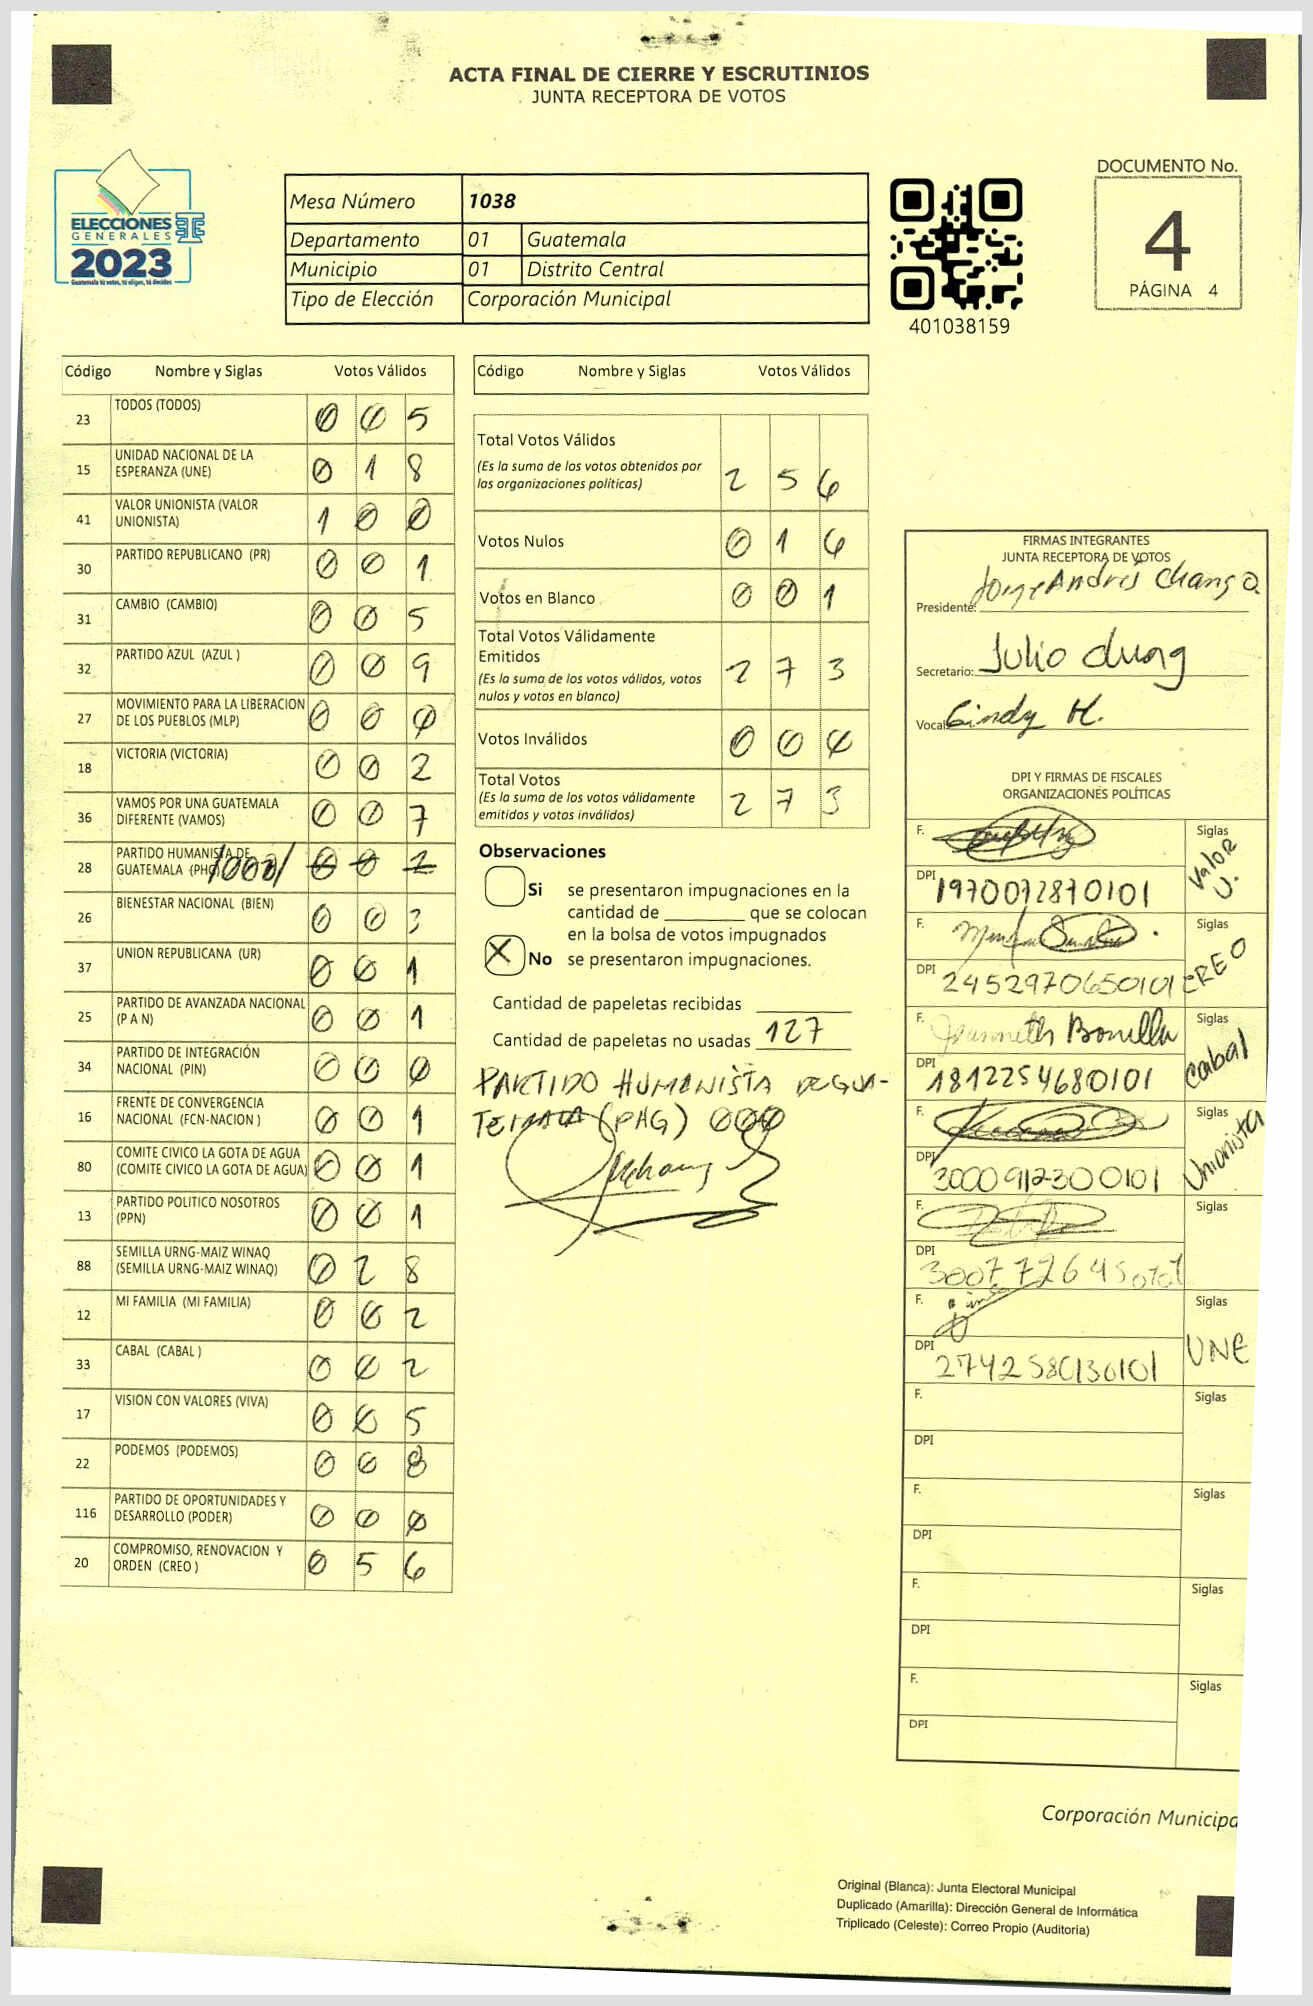 ACTA FINAL DE CIERRE Y ESCRUTINIOS
JUNTA RECEPTORA DE VOTOS
ELECCIONES
GENERALES
2023
Guatemala tú votas, tú eliges, tú decides
TSE
Mesa Número 1038
Departamento 01 Guatemala
Municipio 01 Distrito Central
Tipo de Elección Corporación Municipal
401038159
DOCUMENTO No.
4
PÁGINA 4
Código Nombre y Siglas Votos Válidos
23 TODOS (TODOS) 0 0 5
15 UNIDAD NACIONAL DE LA
ESPERANZA (UNE) 0 1 8
41 VALOR UNIONISTA (VALOR
UNIONISTA) 1 0 0
30 PARTIDO REPUBLICANO (PR) 0 0 1
31 CAMBIO (CAMBIO) 0 0 5
32 PARTIDO AZUL (AZUL ) 0 0 9
27 MOVIMIENTO PARA LA LIBERACION
DE LOS PUEBLOS (MLP) 0 0 0
18 VICTORIA (VICTORIA) 0 0 2
36 VAMOS POR UNA GUATEMALA
DIFERENTE (VAMOS) 0 0 7
28 PARTIDO HUMANISTA DE
GUATEMALA (PHG) /000/
26 BIENESTAR NACIONAL (BIEN) 0 0 3
37 UNION REPUBLICANA (UR) 0 0 1
25 PARTIDO DE AVANZADA NACIONAL
(P A N) 0 0 1
34 PARTIDO DE INTEGRACIÓN
NACIONAL (PIN) 0 0 0
16 FRENTE DE CONVERGENCIA
NACIONAL (FCN-NACION ) 0 0 1
80 COMITE CIVICO LA GOTA DE AGUA
(COMITE CIVICO LA GOTA DE AGUA) 0 0 1
13 PARTIDO POLITICO NOSOTROS
(PPN) 0 0 1
88 SEMILLA URNG-MAIZ WINAQ
(SEMILLA URNG-MAIZ WINAQ) 0 2 8
12 MI FAMILIA (MI FAMILIA) 0 0 2
33 CABAL (CABAL ) 0 0 2
17 VISION CON VALORES (VIVA) 0 0 5
22 PODEMOS (PODEMOS) 0 0 8
116 PARTIDO DE OPORTUNIDADES Y
DESARROLLO (PODER) 0 0 0
20 COMPROMISO, RENOVACION Y
ORDEN (CREO ) 0 5 6
Código Nombre y Siglas Votos Válidos
Total Votos Válidos
(Es la suma de los votos obtenidos por
las organizaciones políticas) 2 5 6
Votos Nulos 0 1 6
Votos en Blanco 0 0 1
Total Votos Válidamente
Emitidos
(Es la suma de los votos válidos, votos
nulos y votos en blanco) 2 7 3
Votos Inválidos 0 0 0
Total Votos
(Es la suma de los votos válidamente
emitidos y votos inválidos) 2 7 3
Observaciones
Si se presentaron impugnaciones en la
cantidad de ________ que se colocan
en la bolsa de votos impugnados
X No se presentaron impugnaciones.
Cantidad de papeletas recibidas
Cantidad de papeletas no usadas 127
PARTIDO HUMANISTA DE GUA-
TEMALA (PHG) 000
FIRMAS INTEGRANTES
JUNTA RECEPTORA DE VOTOS
Presidente: Jorge Andrés Chang
Secretario: Julio Chung
Vocal: Cindy H.
DPI Y FIRMAS DE FISCALES
ORGANIZACIONES POLÍTICAS
F. Siglas Valor U.
DPI 1970072870101
F. Siglas CREO
DPI 2452970650101
F. Jeanneth Bonilla Siglas Cabal
DPI 1812254680101
F. Siglas Unionista
DPI 3000912300101
F. Siglas
DPI 3007726450101
F. Siglas UNE
DPI 2742580130101
F. Siglas
DPI
F. Siglas
DPI
F. Siglas
DPI
F. Siglas
DPI
Corporación Municipa
Original (Blanca): Junta Electoral Municipal
Duplicado (Amarilla): Dirección General de Informática
Triplicado (Celeste): Correo Propio (Auditoría)